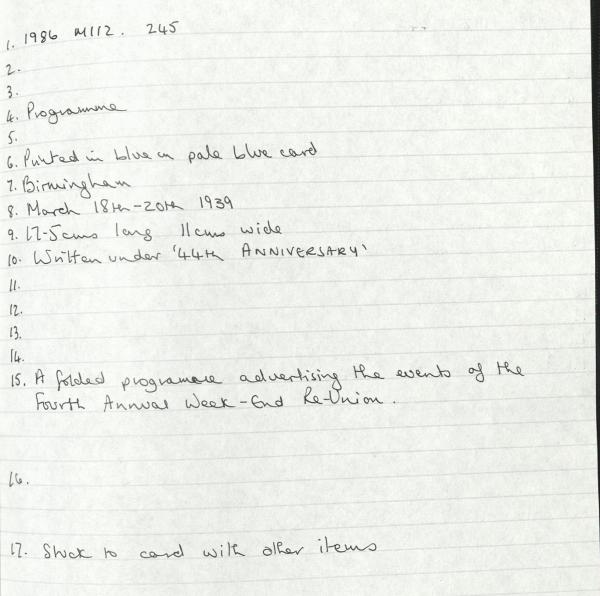 1. 1986 M112. 245
2.
3.
4. Programme
5.
6. Printed in blue on pale blue card
7. Birmingham
8. March 18th-20th 1939
9. 17-5cms long 11cms wide
10. Written under '44th ANNIVERSARY'
11.
12.
13.
14.
15. A folded programme advertising the events of the
Fourth Annual Week-End Re-Union.
16.
17. Stuck to card with other items